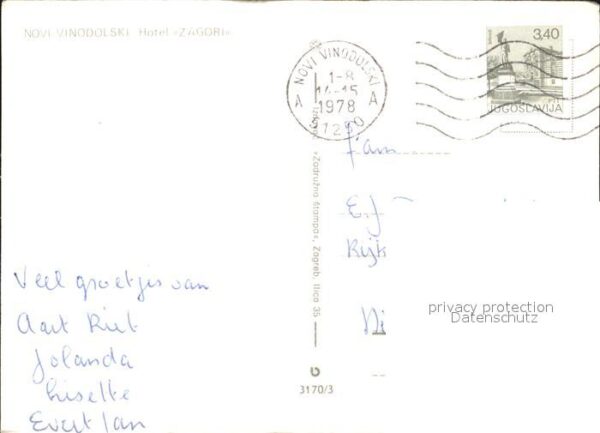 NOVI VINODOLSKI Hotel »ZAGORI«
NOVI VINODOLSKI
1-8
14-15
1978
A A
51250
3,40
JUGOSLAVIJA
Fam
E.J
Rijks
Ni
privacy protection
Datenschutz
»Zadružna štampa«, Zagreb, Ilica 35
3170/3
Veel groetjes van
Aart Riet
Jolanda
Liselte
Evert Jan